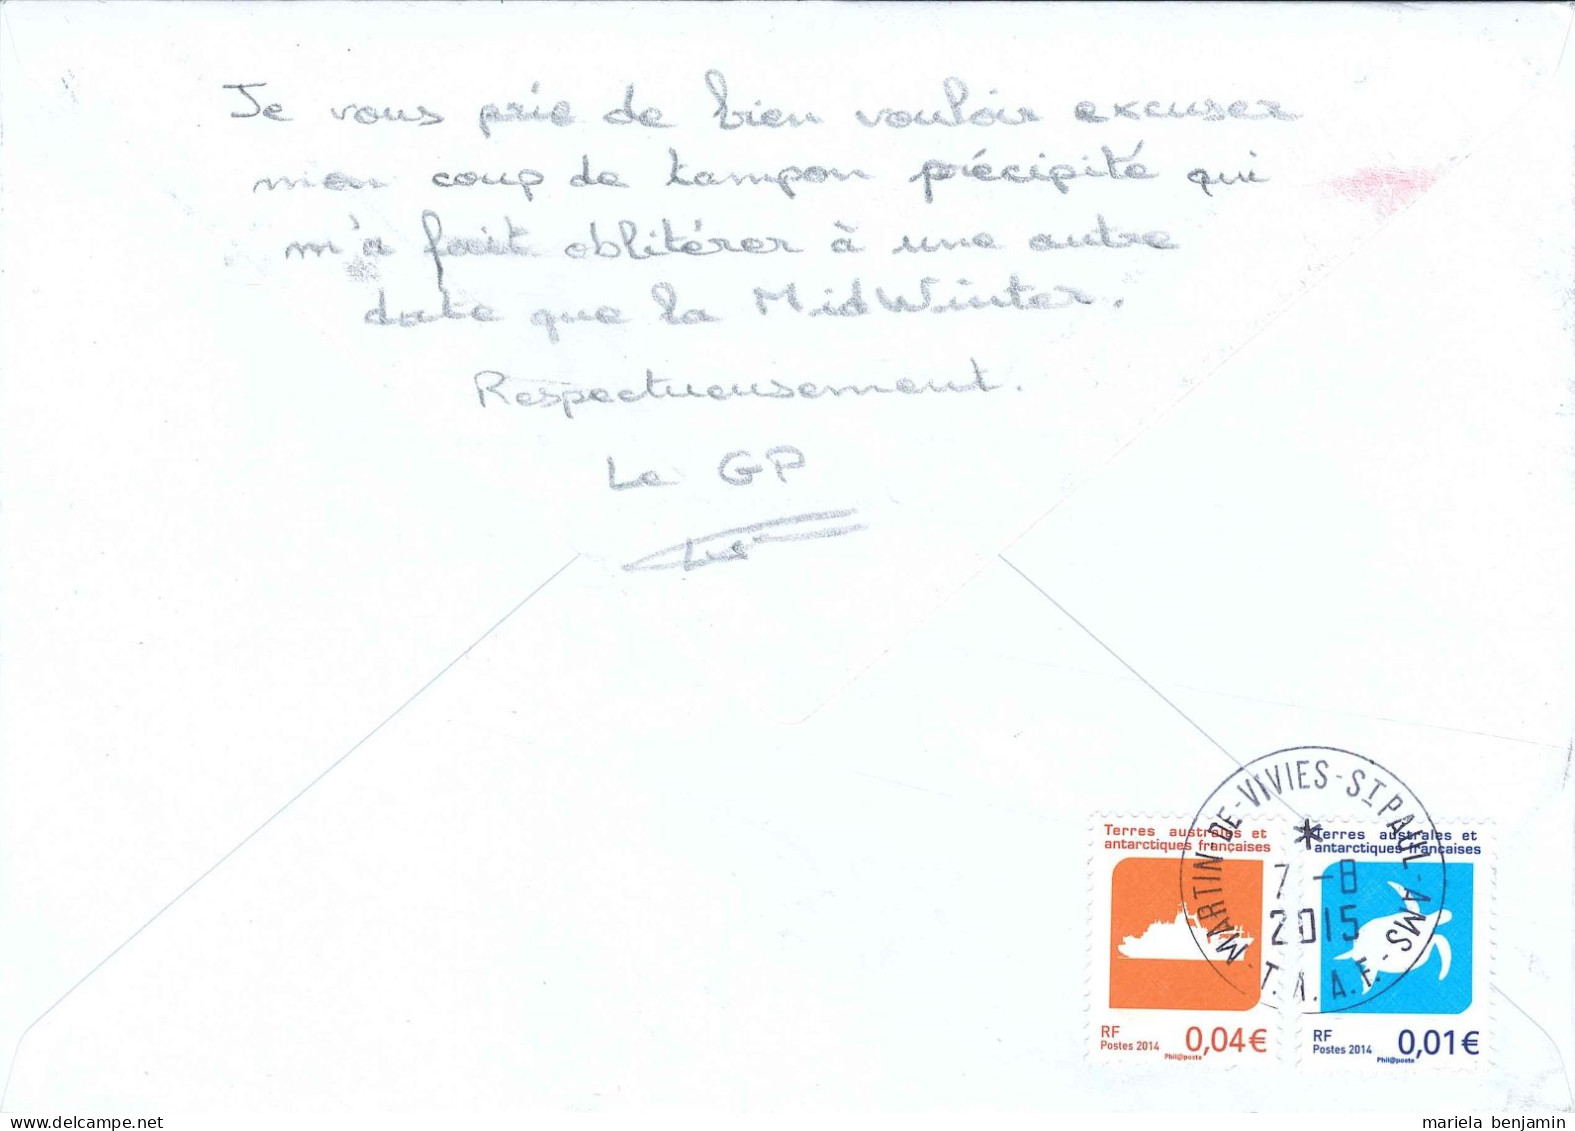 Je vous prie de bien vouloir excuser
mon coup de tampon précipité qui
m'a fait oblitérer à une autre
date que la MidWinter.
Respectueusement.
Le GP
MARTIN-DE-VIVIES-ST PAUL-AMS-
T.A.A.F.-
7 -8
2015
Terres australes et
antarctiques françaises
RF
Postes 2014
0,04€
Phil@poste
Terres australes et
antarctiques françaises
RF
Postes 2014
0,01€
Phil@poste
mariela benjamin